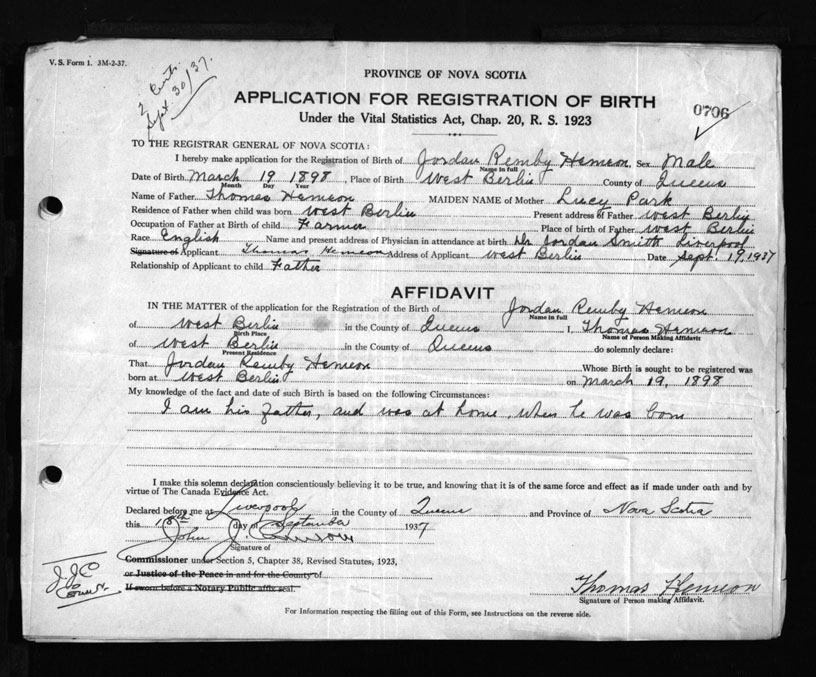 V. S. Form 1. 3M-2-37.
2 Certs.
Sept. 30/37.
PROVINCE OF NOVA SCOTIA
APPLICATION FOR REGISTRATION OF BIRTH
0706
Under the Vital Statistics Act, Chap. 20, R. S. 1923
TO THE REGISTRAR GENERAL OF NOVA SCOTIA:
I hereby make application for the Registration of Birth of Jordan Remby Hemeon Sex Male
Name in full
Date of Birth March 19 1898, Place of Birth West Berlin County of Queens
Month Day Year
Name of Father Thomas Hemeon MAIDEN NAME of Mother Lucy Park
Residence of Father when child was born West Berlin Present address of Father West Berlin
Occupation of Father at Birth of child Farmer Place of birth of Father West Berlin
Race English Name and present address of Physician in attendance at birth Dr Jordan Smith Liverpool
Signature of Applicant Thomas Hemeon Address of Applicant West Berlin Date Sept. 19, 1937
Relationship of Applicant to child Father
AFFIDAVIT
IN THE MATTER of the application for the Registration of the Birth of Jordan Remby Hemeon
Name in full
of West Berlin in the County of Queens I, Thomas Hemeon
Birth Place Name of Person Making Affidavit
of West Berlin in the County of Queens do solemnly declare:
Present Residence
That Jordan Remby Hemeon Whose Birth is sought to be registered was
born at West Berlin on March 19, 1898
My knowledge of the fact and date of such Birth is based on the following Circumstances:
I am his father, and was at home, when he was born
I make this solemn declaration conscientiously believing it to be true, and knowing that it is of the same force and effect as if made under oath and by
virtue of The Canada Evidence Act.
Declared before me at Liverpool in the County of Queens and Province of Nova Scotia
this day of September 1937
John J.
Signature of
Commissioner under Section 5, Chapter 38, Revised Statutes, 1923,
or Justice of the Peace in and for the County of
If sworn before a Notary Public affix seal.
Thomas Hemeon
Signature of Person making Affidavit.
For Information respecting the filling out of this Form, see Instructions on the reverse side.